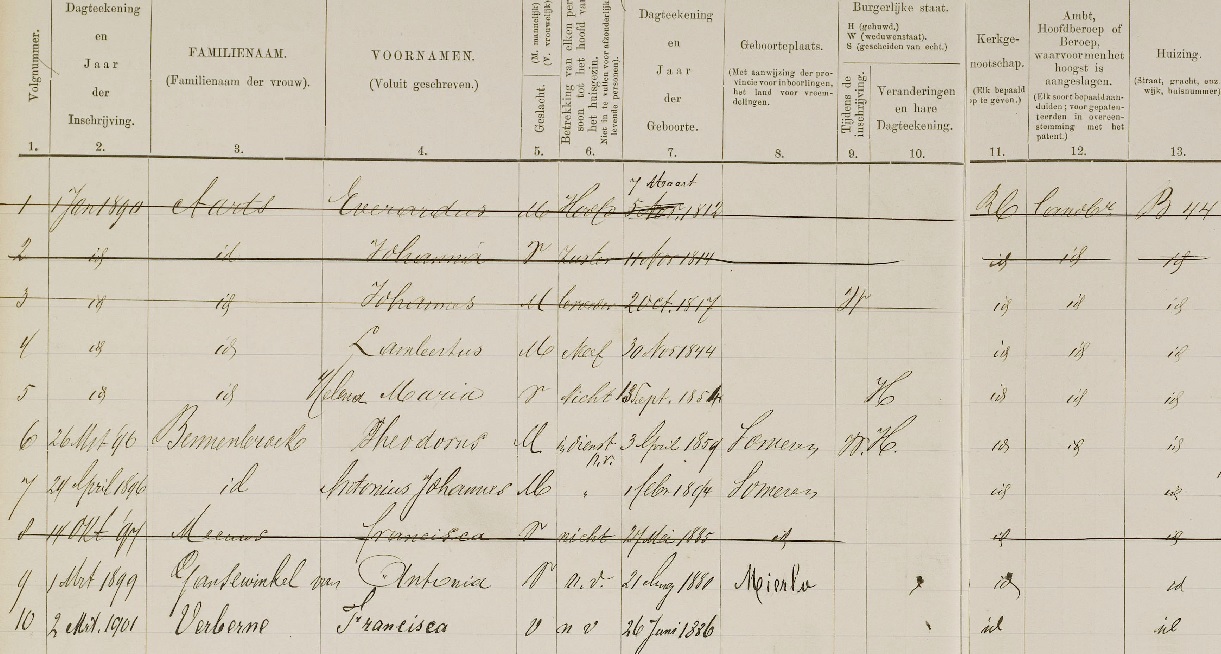 Volgnummer.
Dagteekening
en
Jaar
der
Inschrijving.
FAMILIENAAM.
(Familienaam der vrouw).
VOORNAMEN.
(Voluit geschreven.)
Geslacht. (M. mannelijk) (V. vrouwelijk)
Betrekking van elken per
soon tot het hoofd van
het huisgezin.
Dagteekening
en
Jaar
der
Geboorte.
Geboorteplaats.
(Met aanwijzing der pro-
vincie voor inboorlingen,
het land voor vreem-
delingen.
Burgerlijke staat.
H (gehuwd.)
W (weduwenstaat).
S (gescheiden van echt.)
Tijdens de
inschrijving.
Veranderingen
en hare
Dagteekening.
Kerkge-
nootschap.
(Elk bepaald
op te geven.)
Ambt,
Hoofdberoep of
Beroep,
waarvoor men het
hoogst is
aangeslagen.
(Elk soort bepaald aan-
duiden; voor gepaten-
teerden in overeen-
stemming met het
patent.)
Huizing.
(Straat, gracht, enz.
wijk, huisnummer)
1. 2. 3. 4. 5. 6. 7. 8. 9. 10. 11. 12. 13.
7 Maart
1 1 Jan 1890 Aarts Everardus M Hoofd 5 Nov. 1812 RC Landbr B 44
2 id id Johanna V Zuster 11 Nov 1814 id id id
3 id id Johannes M broeder 2 Oct. 1817 W id id id
4 id id Lambertus M Neef 30 Nov 1844 id id id
5 id id Helena Maria V Nicht Sept. H id id id
6 26 Mrt 96 Bennenbroek Theodorus M in dienst 3 April 1859 Someren W. H. id id id
n.v.
7 29 April 1896 id Antonius Johannes M " 1 Febr 1894 Someren id id
8 14 Okt 97 Meeuws Francisca V nicht Mei 1885 id id id
9 1 Mrt 1899 Gansewinkel van Antonia V n.v. 21 Aug 1880 Mierlo id id
10 2 Mrt. 1901 Verberne Francisca v n v 26 Juni 1886 id id